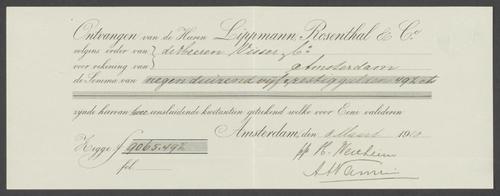 Ontvangen van de Heeren Lippmann, Rosenthal & Co.
volgens order van de Heeren Visser & Co
voor rekening van Amsterdam
de Somma van negen duizend vijf & zestig gulden 49½ ct
zynde hiervan twee eensluidende kwitantien geteekend welke voor Eéne valideeren
Amsterdam, den Maart 1910
Zegge f 9065.49½
fol.
pp